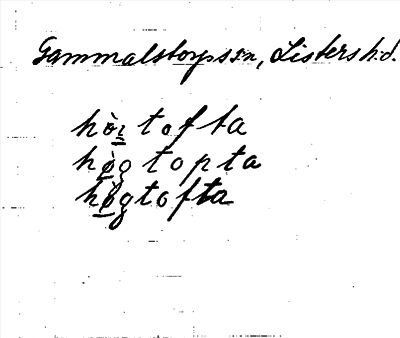 Gammalstorps sn, Listers hd.
hòi̲ tofta
hò̲g topta
hò̲gtofta